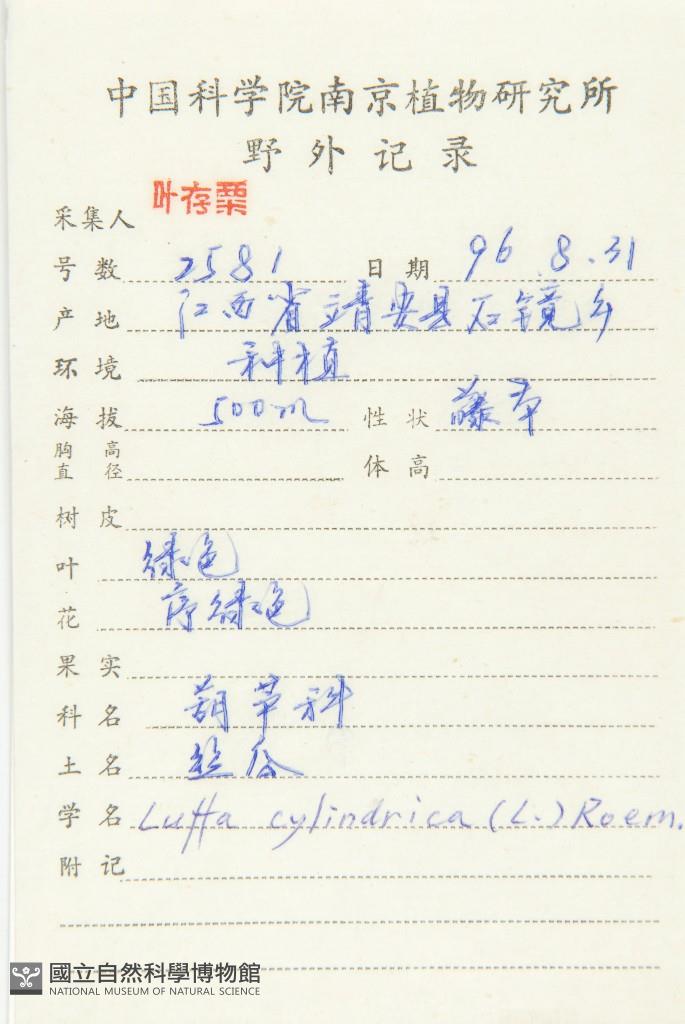 中国科学院南京植物研究所
野外记录
采集人 叶存栗
号数 2581 日期 96.8.31
产地 江西省靖安县石镜乡
环境 种植
海拔 500m 性状 藤本
胸高直径 体高
树皮
叶 绿色
花 序绿色
果实
科名 葫芦科
土名 丝瓜
学名 Luffa cylindrica (L.) Roem.
附记
國立自然科學博物館
NATIONAL MUSEUM OF NATURAL SCIENCE